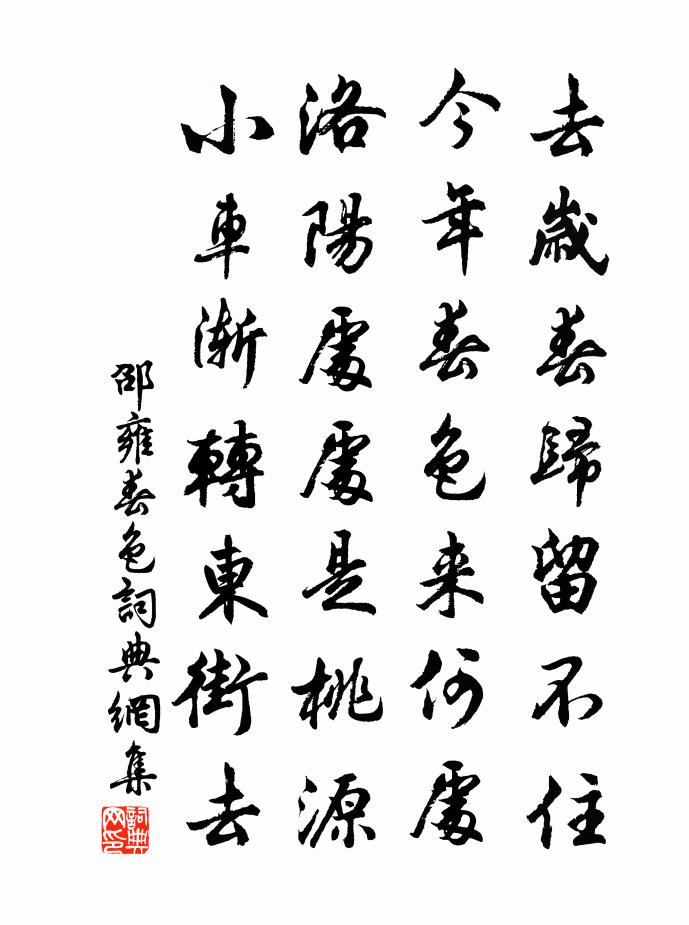 去歲春歸留不住
今年春色来何處
洛陽處處是桃源
小車漸轉東街去
邵雍春色詞典網集
詞典网印